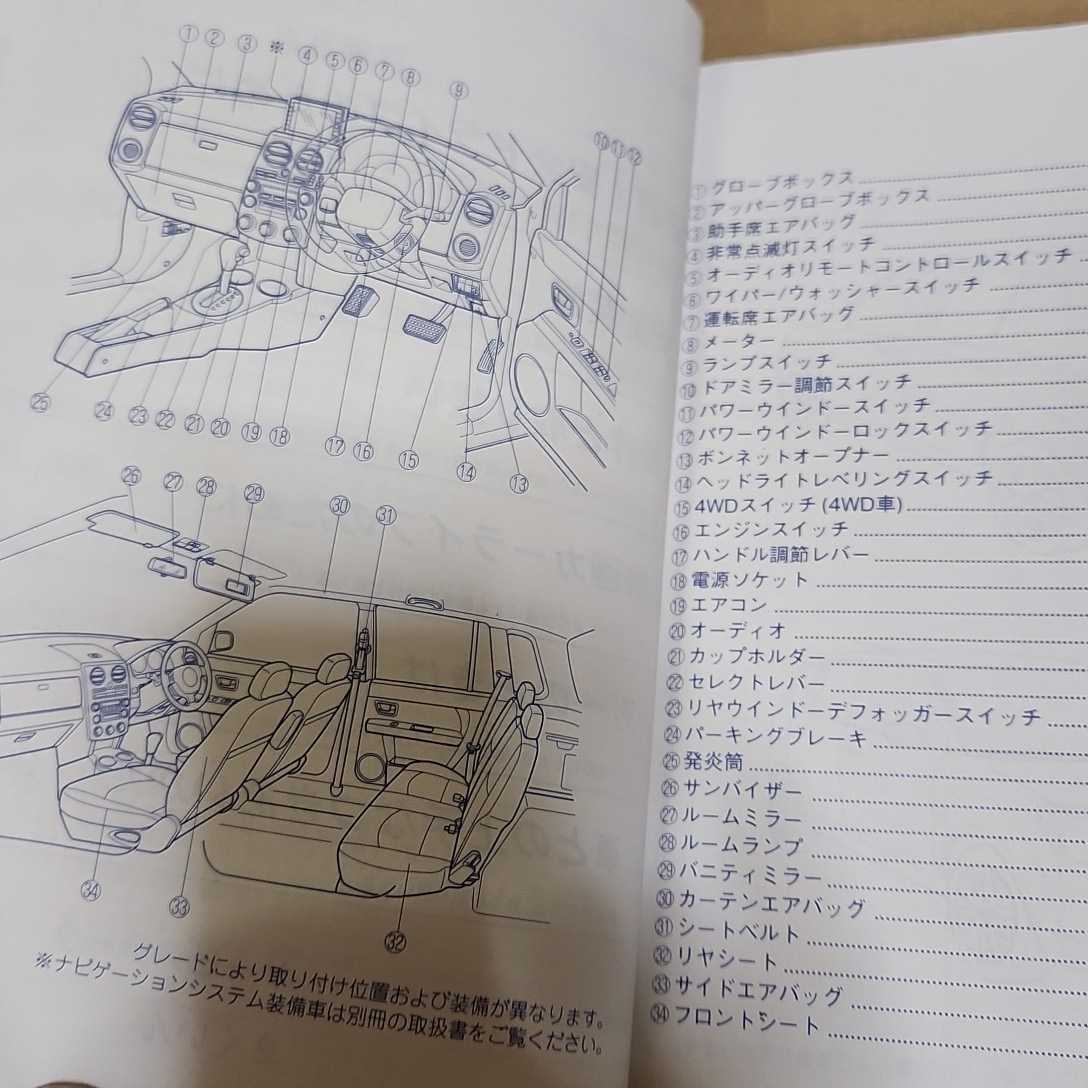 ① ② ③ ※ ④ ⑤ ⑥ ⑦ ⑧ ⑨
⑩ ⑪ ⑫
㉕ ㉔ ㉓ ㉒ ㉑ ⑳ ⑲ ⑱ ⑰ ⑯ ⑮ ⑭ ⑬
㉖ ㉗ ㉘ ㉙ ㉚ ㉛
㉞ ㉝ ㉜
グレードにより取り付け位置および装備が異なります。
※ナビゲーションシステム装備車は別冊の取扱書をご覧ください。
①グローブボックス
②アッパーグローブボックス
③助手席エアバッグ
④非常点滅灯スイッチ
⑤オーディオリモートコントロールスイッチ
⑥ワイパー/ウォッシャースイッチ
⑦運転席エアバッグ
⑧メーター
⑨ランプスイッチ
⑩ドアミラー調節スイッチ
⑪パワーウインドースイッチ
⑫パワーウインドーロックスイッチ
⑬ボンネットオープナー
⑭ヘッドライトレベリングスイッチ
⑮4WDスイッチ (4WD車)
⑯エンジンスイッチ
⑰ハンドル調節レバー
⑱電源ソケット
⑲エアコン
⑳オーディオ
㉑カップホルダー
㉒セレクトレバー
㉓リヤウインドーデフォッガースイッチ
㉔パーキングブレーキ
㉕発炎筒
㉖サンバイザー
㉗ルームミラー
㉘ルームランプ
㉙バニティミラー
㉚カーテンエアバッグ
㉛シートベルト
㉜リヤシート
㉝サイドエアバッグ
㉞フロントシート